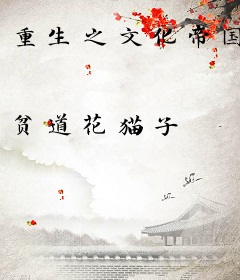 重生之文化帝国
贫道花猫子